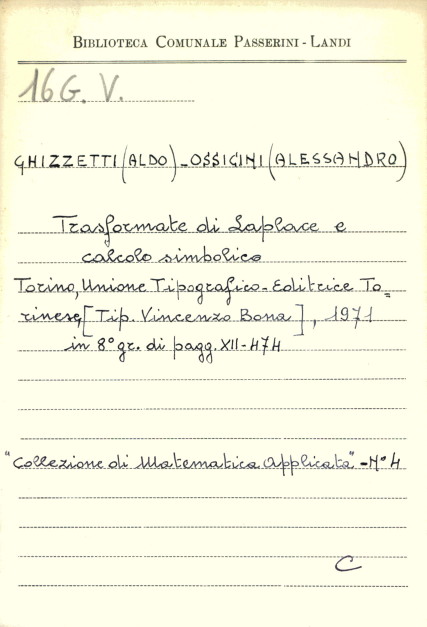 BIBLIOTECA COMUNALE PASSERINI - LANDI
16 G. V.
GHIZZETTI (ALDO) - OSSICINI (ALESSANDRO)
Trasformate di Laplace e
calcolo simbolico
Torino, Unione Tipografico-Editrice To=
rinese, [Tip. Vincenzo Bona], 1971
in 8° gr. di pagg. XII-474
"Collezione di Matematica Applicata" - N° 4
C